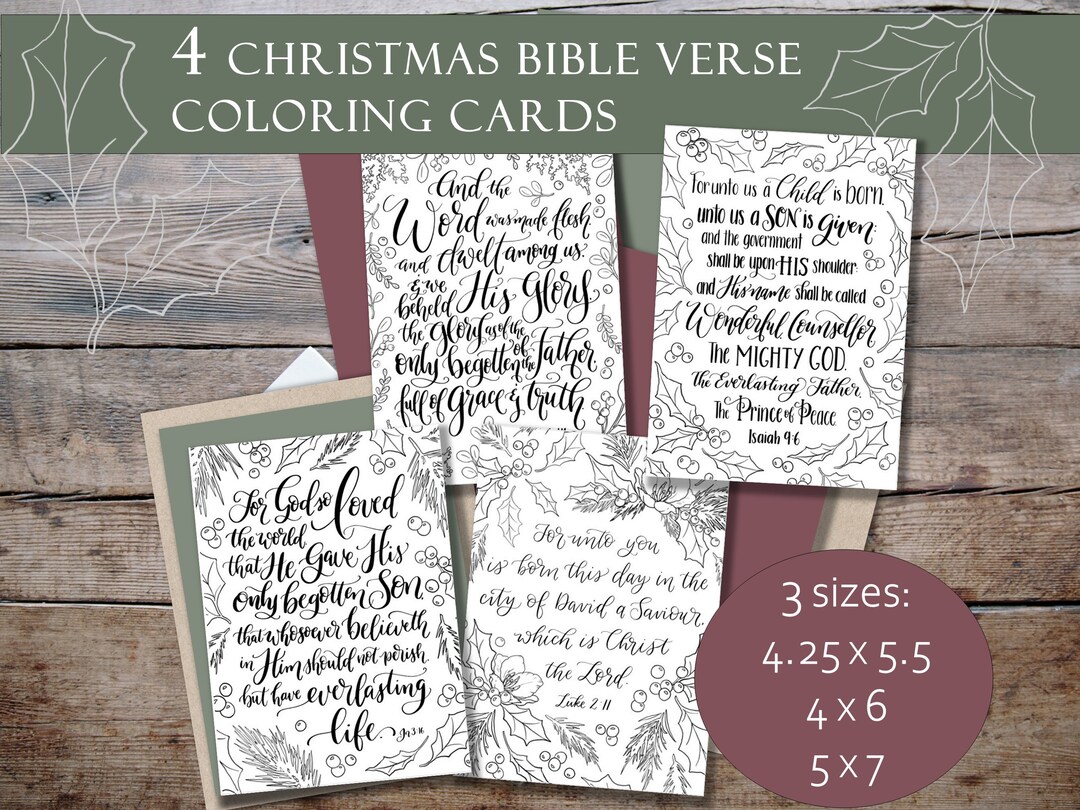 4 CHRISTMAS BIBLE VERSE
COLORING CARDS
And the
Word was made flesh
and dwelt among us:
& we
beheld His Glory
the Glory as of the
only begotten of the Father
full of Grace & truth
For unto us a Child is born,
unto us a SON is Given:
and the government
shall be upon HIS shoulder:
and His name shall be called
Wonderful, Counsellor
The MIGHTY GOD.
The Everlasting Father,
The Prince of Peace.
Isaiah 9:6
For God so loved
the world
that He Gave His
only begotten Son,
that whosoever believeth
in Him should not perish
but have everlasting
life. Jn 3:16
For unto you
is born this day in the
city of David a Saviour,
which is Christ
the Lord.
Luke 2:11
3 sizes:
4.25 x 5.5
4 x 6
5 x 7